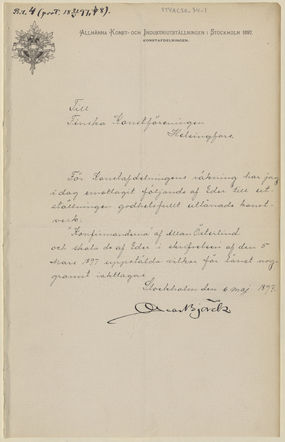 Br. 4 (prot. 18 97, § 8).
ALLMÄNNA KONST- OCH INDUSTRIUTSTÄLLNINGEN I STOCKHOLM 1897.
KONSTAFDELNINGEN.
Till
Finska Konstföreningen
Helsingfors
För Konstafdelningens räkning har jag
i dag emottagit följande af Eder till ut-
ställningen godhetsfullt utlånade konst-
verk:
"Konfirmanderna" af Allan Österlind
och skola de af Eder i skrifvelsen af den 5
Mars 1897 uppstälda vilkor för lånet nog-
grannt iakttagas.
Stockholm den 6 maj 1897.
Oscar Björck